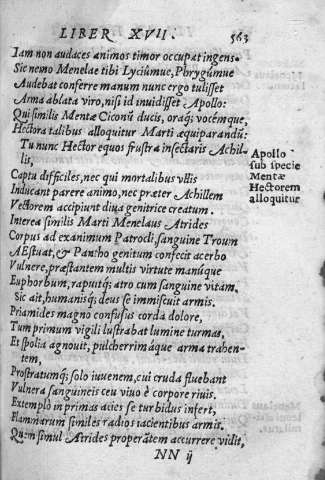 LIBER XVII. 563
Iam non audaces animos timor occupat ingens.
Sic nemo Menelae tibi Lyciúmue, Phrygúmue
Audebat conferre manum nunc ergo tulisset
Arma ablata viro, nisi id inuidisset Apollo:
Qui similis Mentæ Ciconũ ducis, oraq; vocémque,
Hectora talibus alloquitur Marti æquiparandũ:
Tu nunc Hector equos frustra insectaris Achil-
lis,
Captu difficiles, nec qui mortalibus vllis
Inducant parere animo, nec præter Achillem
Vectorem accipiunt diua genitrice creatum.
Interea similis Marti Menelaus Atrides
Corpus ad exanimum Patrocli, sanguine Troum
AEstuat, & Pantho genitum confecit acerbo
Vulnere, præstantem multis virtute manúque
Euphorbum, rapuitq; atro cum sanguine vitam.
Sic ait, humanisq; deus se immiscuit armis.
Priamides magno confusus corda dolore,
Tum primum vigili lustrabat lumine turmas,
Et spolia agnouit, pulcherrimáque arma trahen-
tem,
Prostratumq; solo iuuenem, cui cruda fluebant
Vulnera sanguineis ceu viuo è corpore riuis.
Extemplò in primas acies se turbidus infert,
Flammarum similes radios iacientibus armis.
Quem simul Atrides properãtem accurrere vidit,
NN ij
Apollo
sub specie
Mentæ
Hectorem
alloquitur